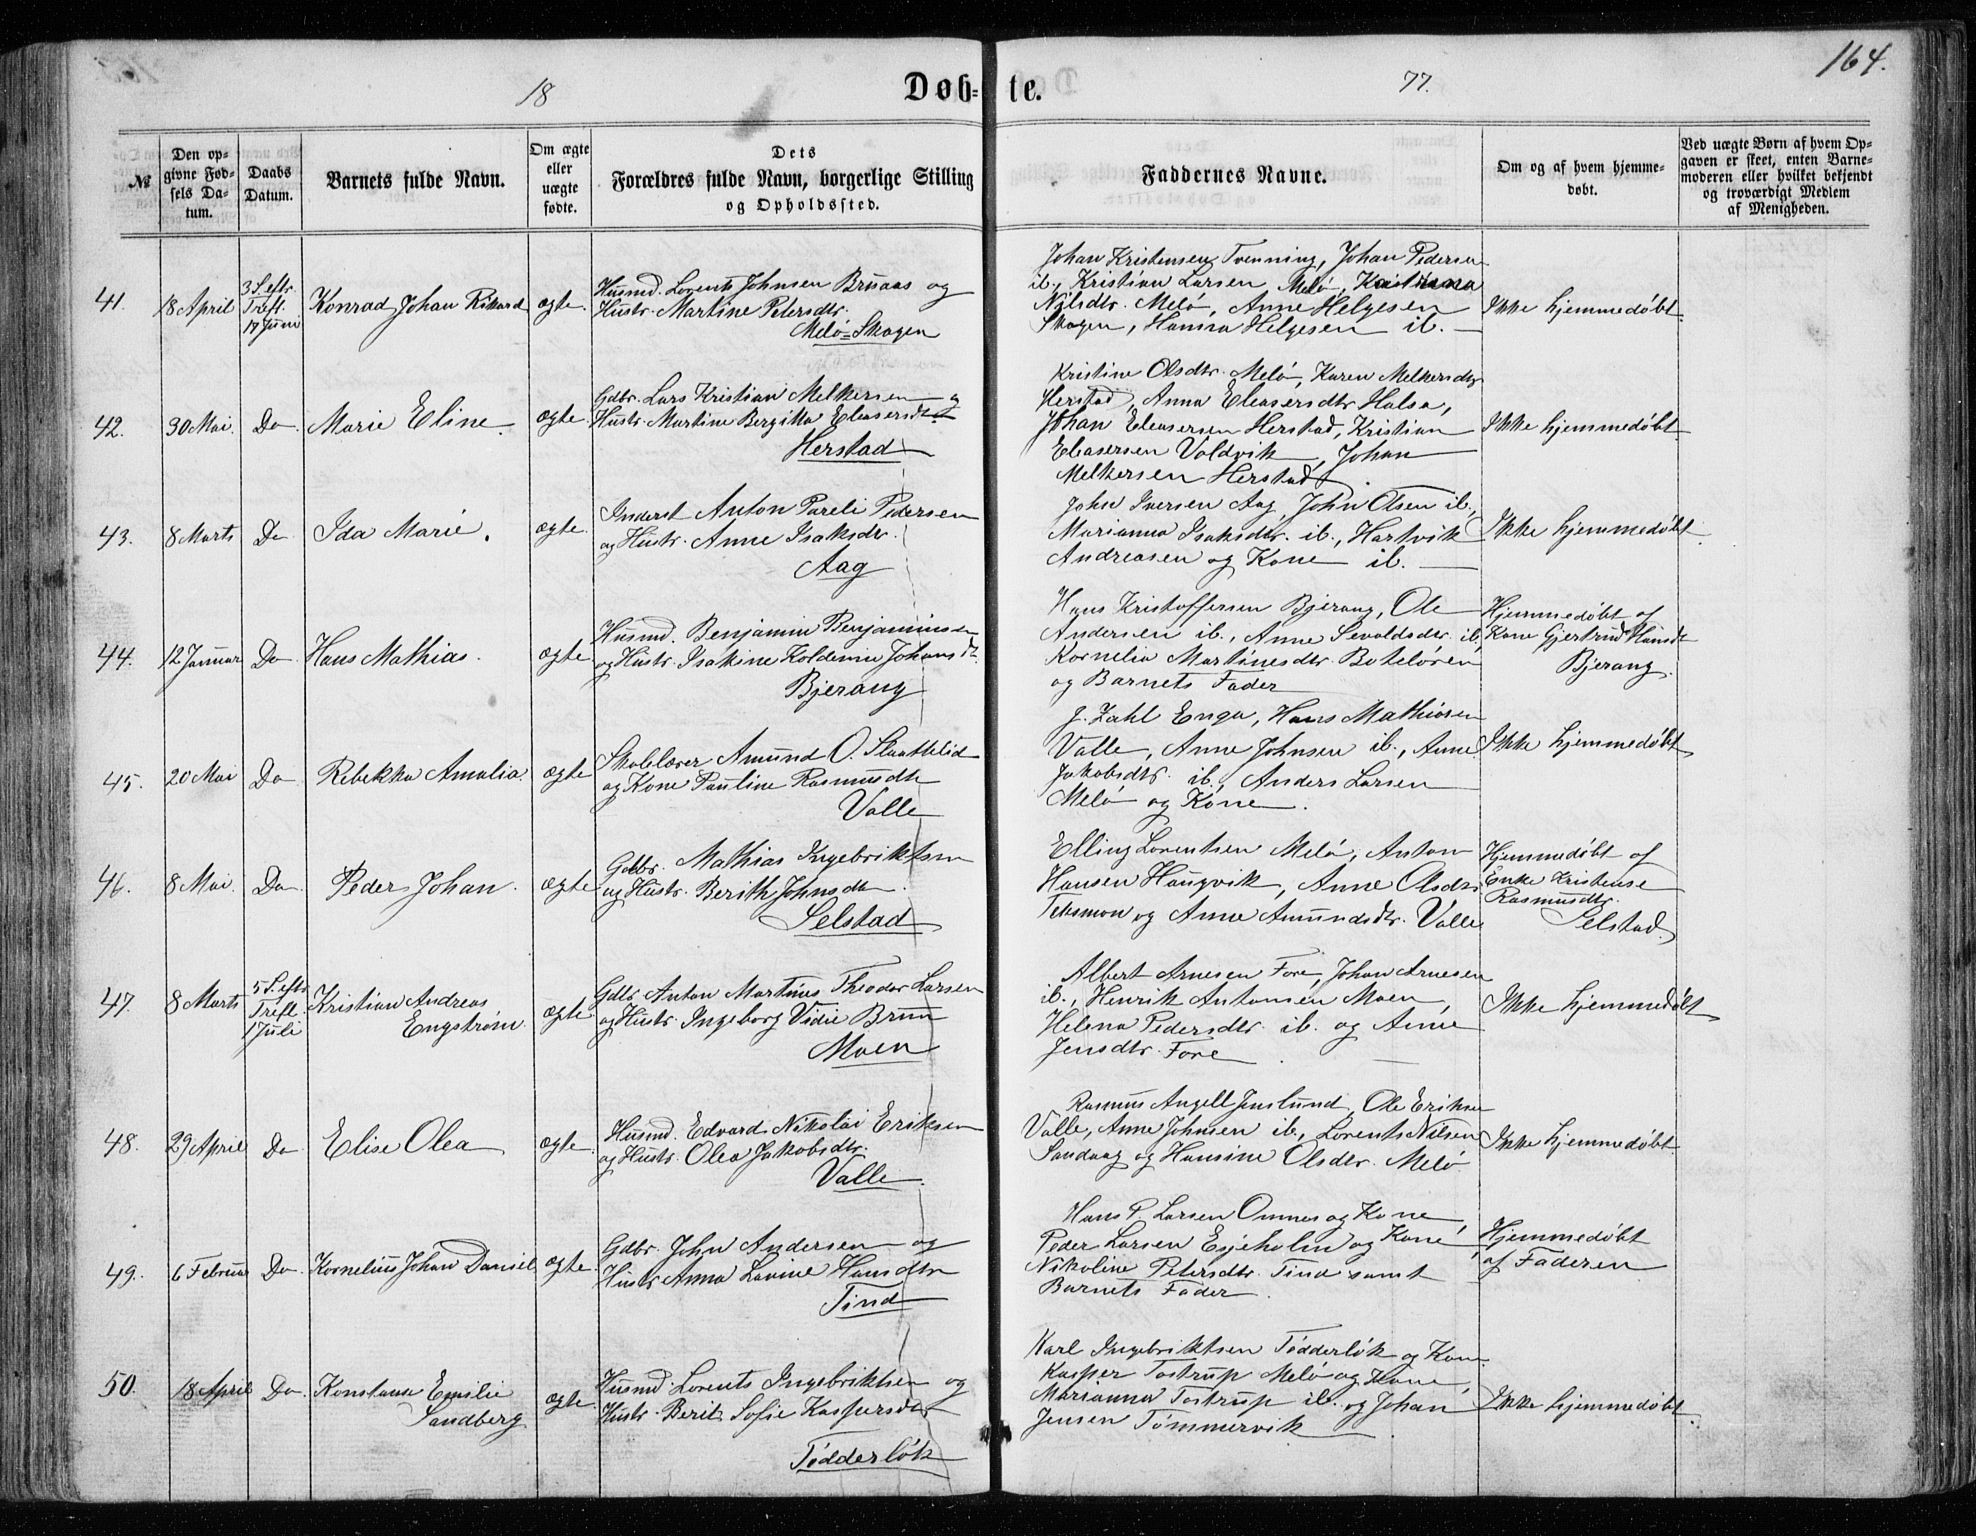 164.
18 77.
Døb= te.
№
Den op=
givne Fød=
sels Da=
tum.
Daabs
Datum.
Barnets fulde Navn.
Om ægte
eller
uægte
fødte.
Dets
Forældres fulde Navn, borgerlige Stilling
og Opholdssted.
Faddernes Navne.
Om og af hvem hjemme=
døbt.
Ved uægte Børn af hvem Op=
gaven er skeet, enten Barne=
moderen eller hvilket bekjendt
og troværdigt Medlem
af Menigheden.
41.
18 April
3 S. eftr.
Tref.
17 Juni
Konrad Johan Rikard
ægte
Husmd. Lorents Johnsen Bruaas og
Hustr. Martine Petersdtr.
Melø=Skogen
Johan Kristensen Tvenning, Johan Pedersen
ib., Kristian Larsen Melø,
Nilsdtr. Melø, Anne Helgesen
Skogen, Hanna Helgesen ib.
Ikke hjemmedøbt
42.
30 Mai.
Do
Marie Eline
ægte
Gdbr. Lars Kristian Melkersen og
Hustr. Martine Bergitta Eleasersdtr
Herstad
Kristine Olsdtr. Melø, Karen Melkersdtr
Herstad, Anna Eleasersdtr Halsa,
Johan Eleasersen Herstad, Kristian
Eleasersen Valdvik, Johan
Melkersen Herstad.
Ikke hjemmedøbt
43.
8 Marts
Do
Ida Marie.
ægte
Inderst Anton Pareli Pedersen
og Hustr. Anne Isaksdtr.
Aag
John Iversen Aag, John Olsen ib.,
Marianna Isaksdtr. ib., Hartvik
Andreasen og Kone ib.
Ikke hjemmedøbt
44.
12 Januar
Do
Hans Mathias.
ægte
Husmd. Benjamin Benjaminsen
og Hustr. Isakine Koldemia Johansdtr.
Bjerang
Hans Kristoffersen Bjerang, Ole
Andersen ib., Anne Sevaldsdtr. ib.,
Kornelia Martinesdtr. Boteløren
og Barnets Fader
Hjemmedøbt af
Kone Gjertrud Hansdtr
Bjerang.
45.
20 Mai
Do
Rebekka Amalia.
ægte
Skolelærer Amund O. Slaattelid
og Kone Pauline Rasmusdtr
Valle
J. Zahl Enga, Hans Mathiasen
Valle, Anne Johnsen ib., Anne
Jakobsdtr. ib., Anders Larsen
Melø og Kone.
Ikke hjemmedøbt
46.
8 Mai.
Do
Peder Johan.
ægte
Gdbr. Mathias Ingebriktsen
og Hustr. Berith Johnsdtr.
Selstad
Elling Lorentsen Melø, Anton
Hansen Haugvik, Anne Olsdtr.
Teksmon og Anne Amundsdtr. Valle
Hjemmedøbt af
Enke Kristense
Rasmusdtr.
Selstad.
47.
8 Marts
5 S. eftr
Tref.
1 Juli
Kristian Andreas
Engstrøm
ægte
Gdbr Anton Martines Theodor Larsen
og Hustr. Ingeborg Vidie Brun
Moen
Albert Arnesen Fore, Johan Arnesen
ib., Henrik Antonsen Moen,
Helena Pedersdtr. ib. og Anne
Jensdtr. Fore
Ikke hjemmedøbt
48.
29 April
Do
Elise Olea
ægte
Husmd. Edvard Nikolai Eriksen
og Hustr. Olea Jakobsdtr.
Valle
Rasmus Angell Jenslund, Ole Eriksen
Valle, Anne Johnsen ib., Lorents Nilsen
Sandaag og Hansine Olsdtr. Melø
Ikke hjemmedøbt
49.
6 Februar
Do
Kornelius Johan Daniel
ægte
Gdbr. John Andersen og
Hustr Anna Lovine Hansdtr
Tind
Hans P. Larsen Omnes og Kone,
Peder Larsen Esjeholm og Kone
Nikoline Petersdtr. Tind samt
Barnets Fader.
Hjemmedøbt
af Faderen
50.
18 April
Do
Konstanse Emilie
Sandberg
ægte
Husmd. Lorents Ingebriktsen og
Hustr. Berit Sofie Kaspersdtr
Tødderløk
Karl Ingebriktsen Tødderløk og Kone
Kasper Tostrup Melø og Kone,
Marianna Tostrup ib. og Johan
Jensen Tømmervik
Ikke hjemmedøbt.